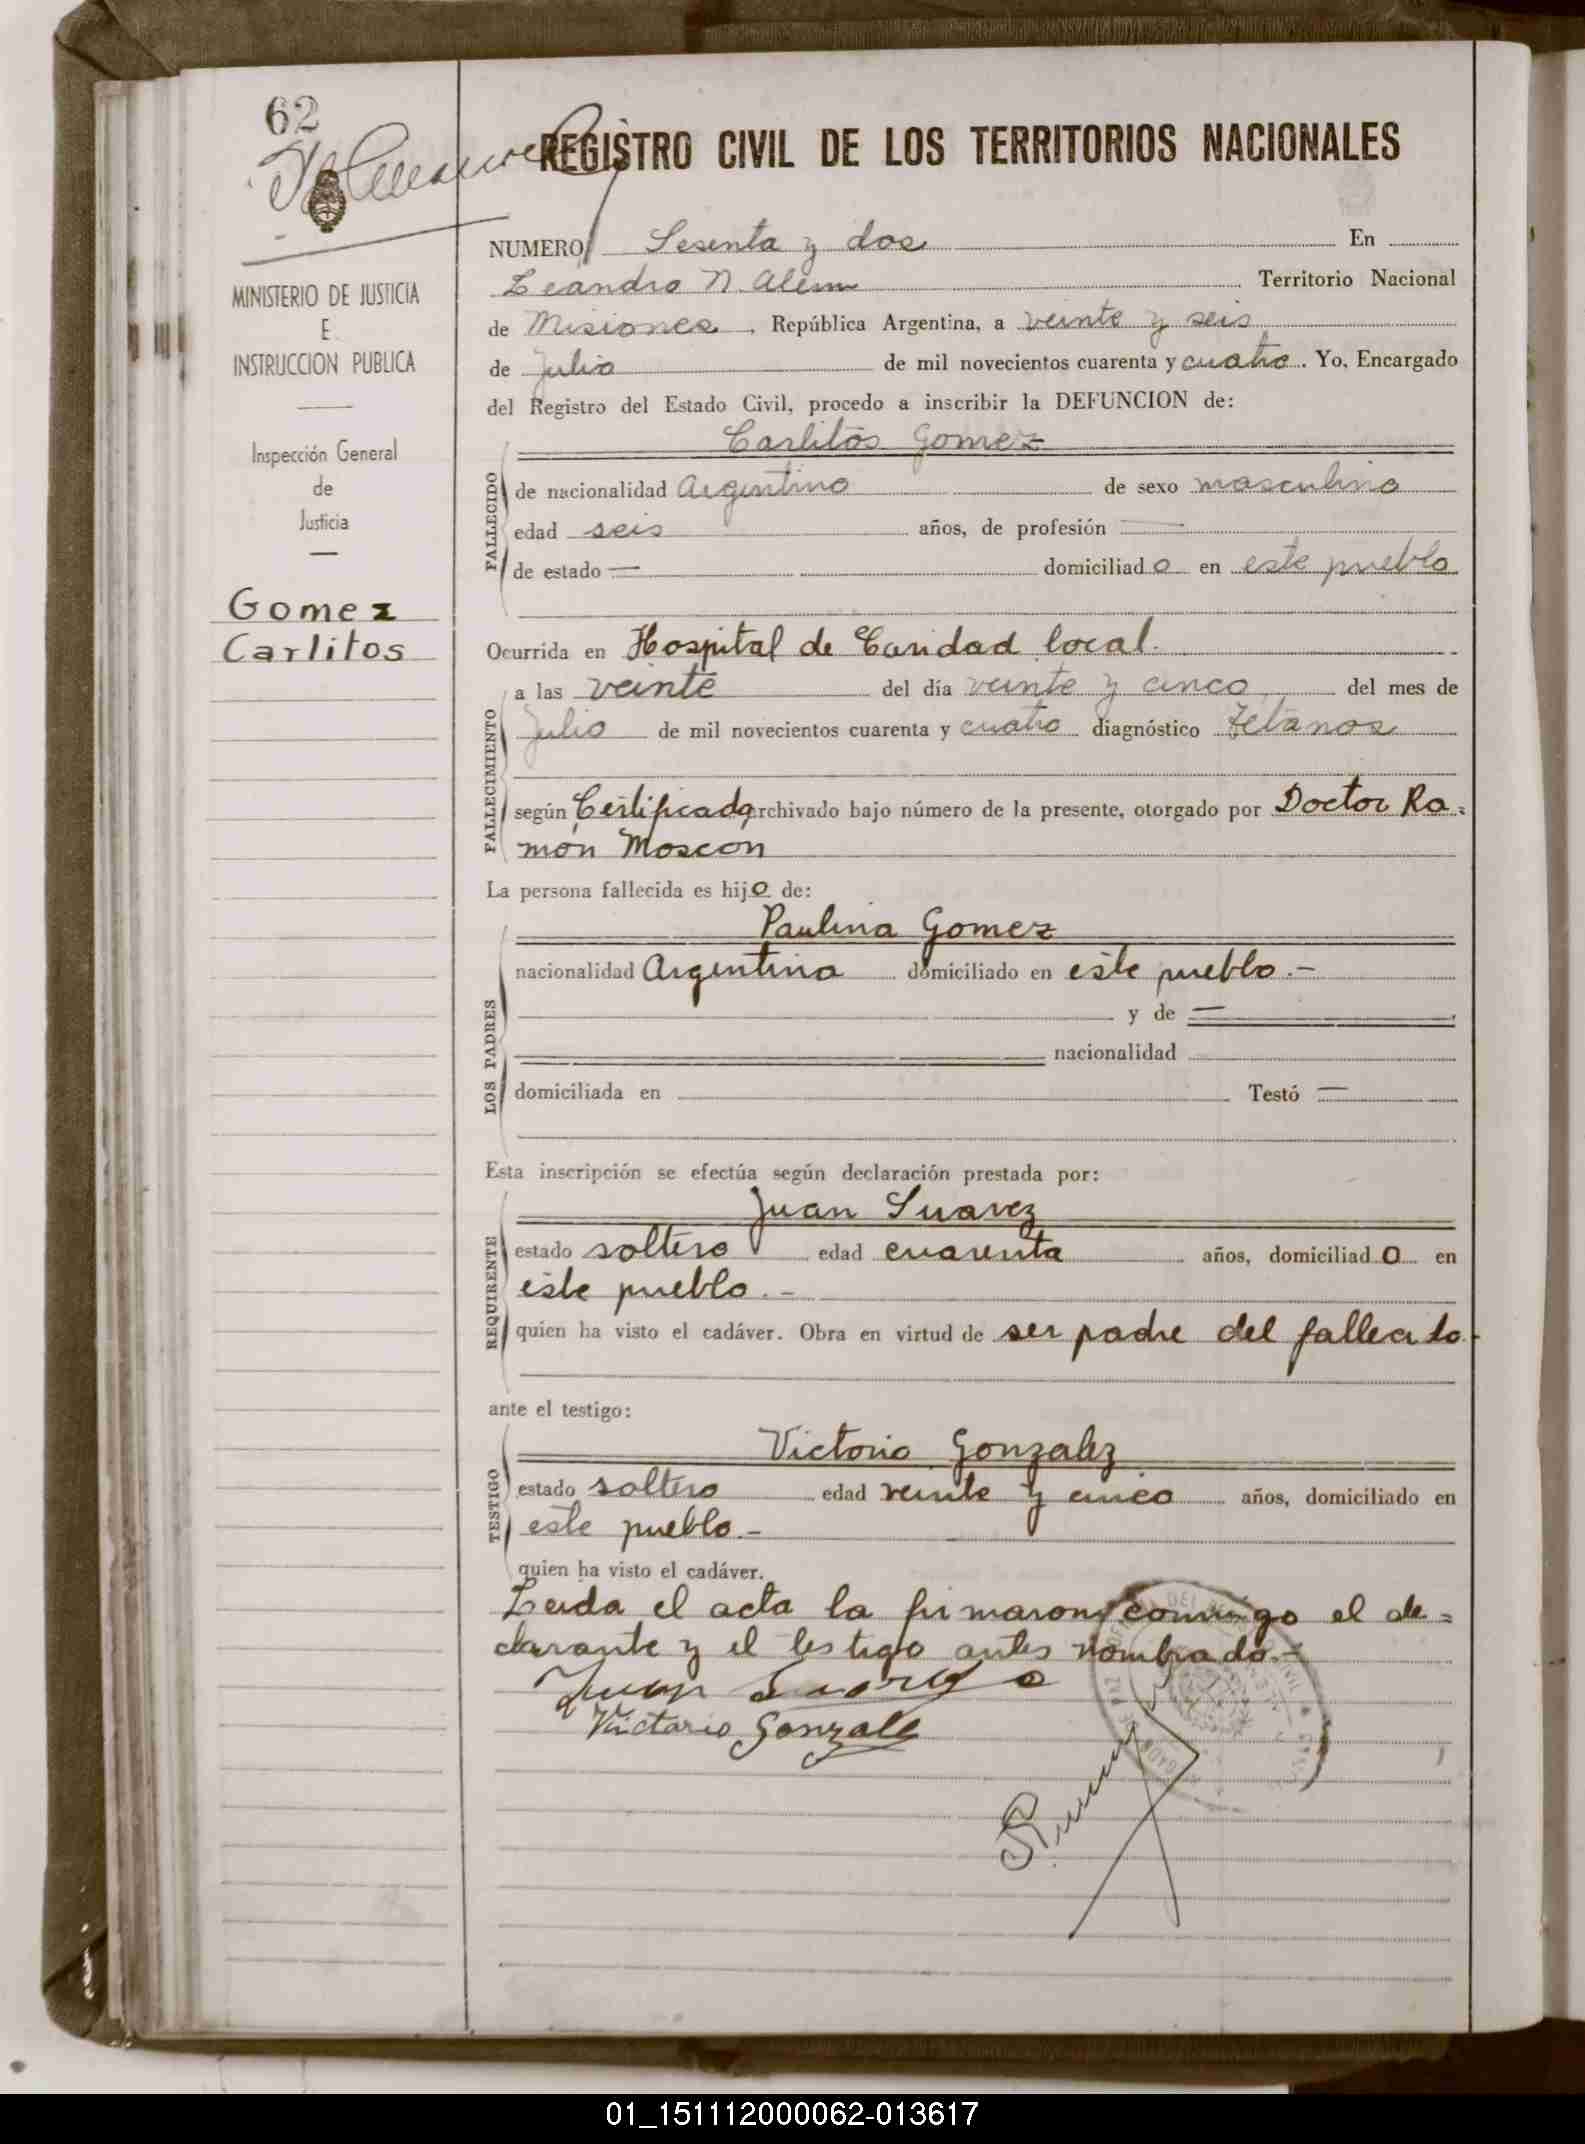 62
REGISTRO CIVIL DE LOS TERRITORIOS NACIONALES
MINISTERIO DE JUSTICIA
E
INSTRUCCION PUBLICA
Inspección General
de
Justicia
Gomez
Carlitos
NUMERO Sesenta y dos En
Leandro N. Alem Territorio Nacional
de Misiones, República Argentina, a veinte y seis
de Julio de mil novecientos cuarenta y cuatro. Yo, Encargado
del Registro del Estado Civil, procedo a inscribir la DEFUNCION de:
Carlitos Gomez
FALLECIDO
de nacionalidad Argentino de sexo masculino
edad seis años, de profesión —
de estado — domiciliado en este pueblo
Ocurrida en Hospital de Caridad local.
FALLECIMIENTO
a las veinte del día veinte y cinco del mes de
Julio de mil novecientos cuarenta y cuatro diagnóstico Tetanos
según Certificado archivado bajo número de la presente, otorgado por Doctor Ra=
món Moscon
La persona fallecida es hijo de:
Paulina Gomez
LOS PADRES
nacionalidad Argentina domiciliado en este pueblo.-
y de —
nacionalidad
domiciliada en Testó —
Esta inscripción se efectúa según declaración prestada por:
Juan Suarez
REQUIRENTE
estado soltero edad cuarenta años, domiciliado en
este pueblo.-
quien ha visto el cadáver. Obra en virtud de ser padre del fallecido.
ante el testigo:
Victorio Gonzalez
TESTIGO
estado soltero edad veinte y cinco años, domiciliado en
este pueblo.-
quien ha visto el cadáver.
Leida el acta la firmaron conmigo el de=
clarante y el testigo antes nombrado.-
Juan
Victorio Gonzale
01_151112000062-013617